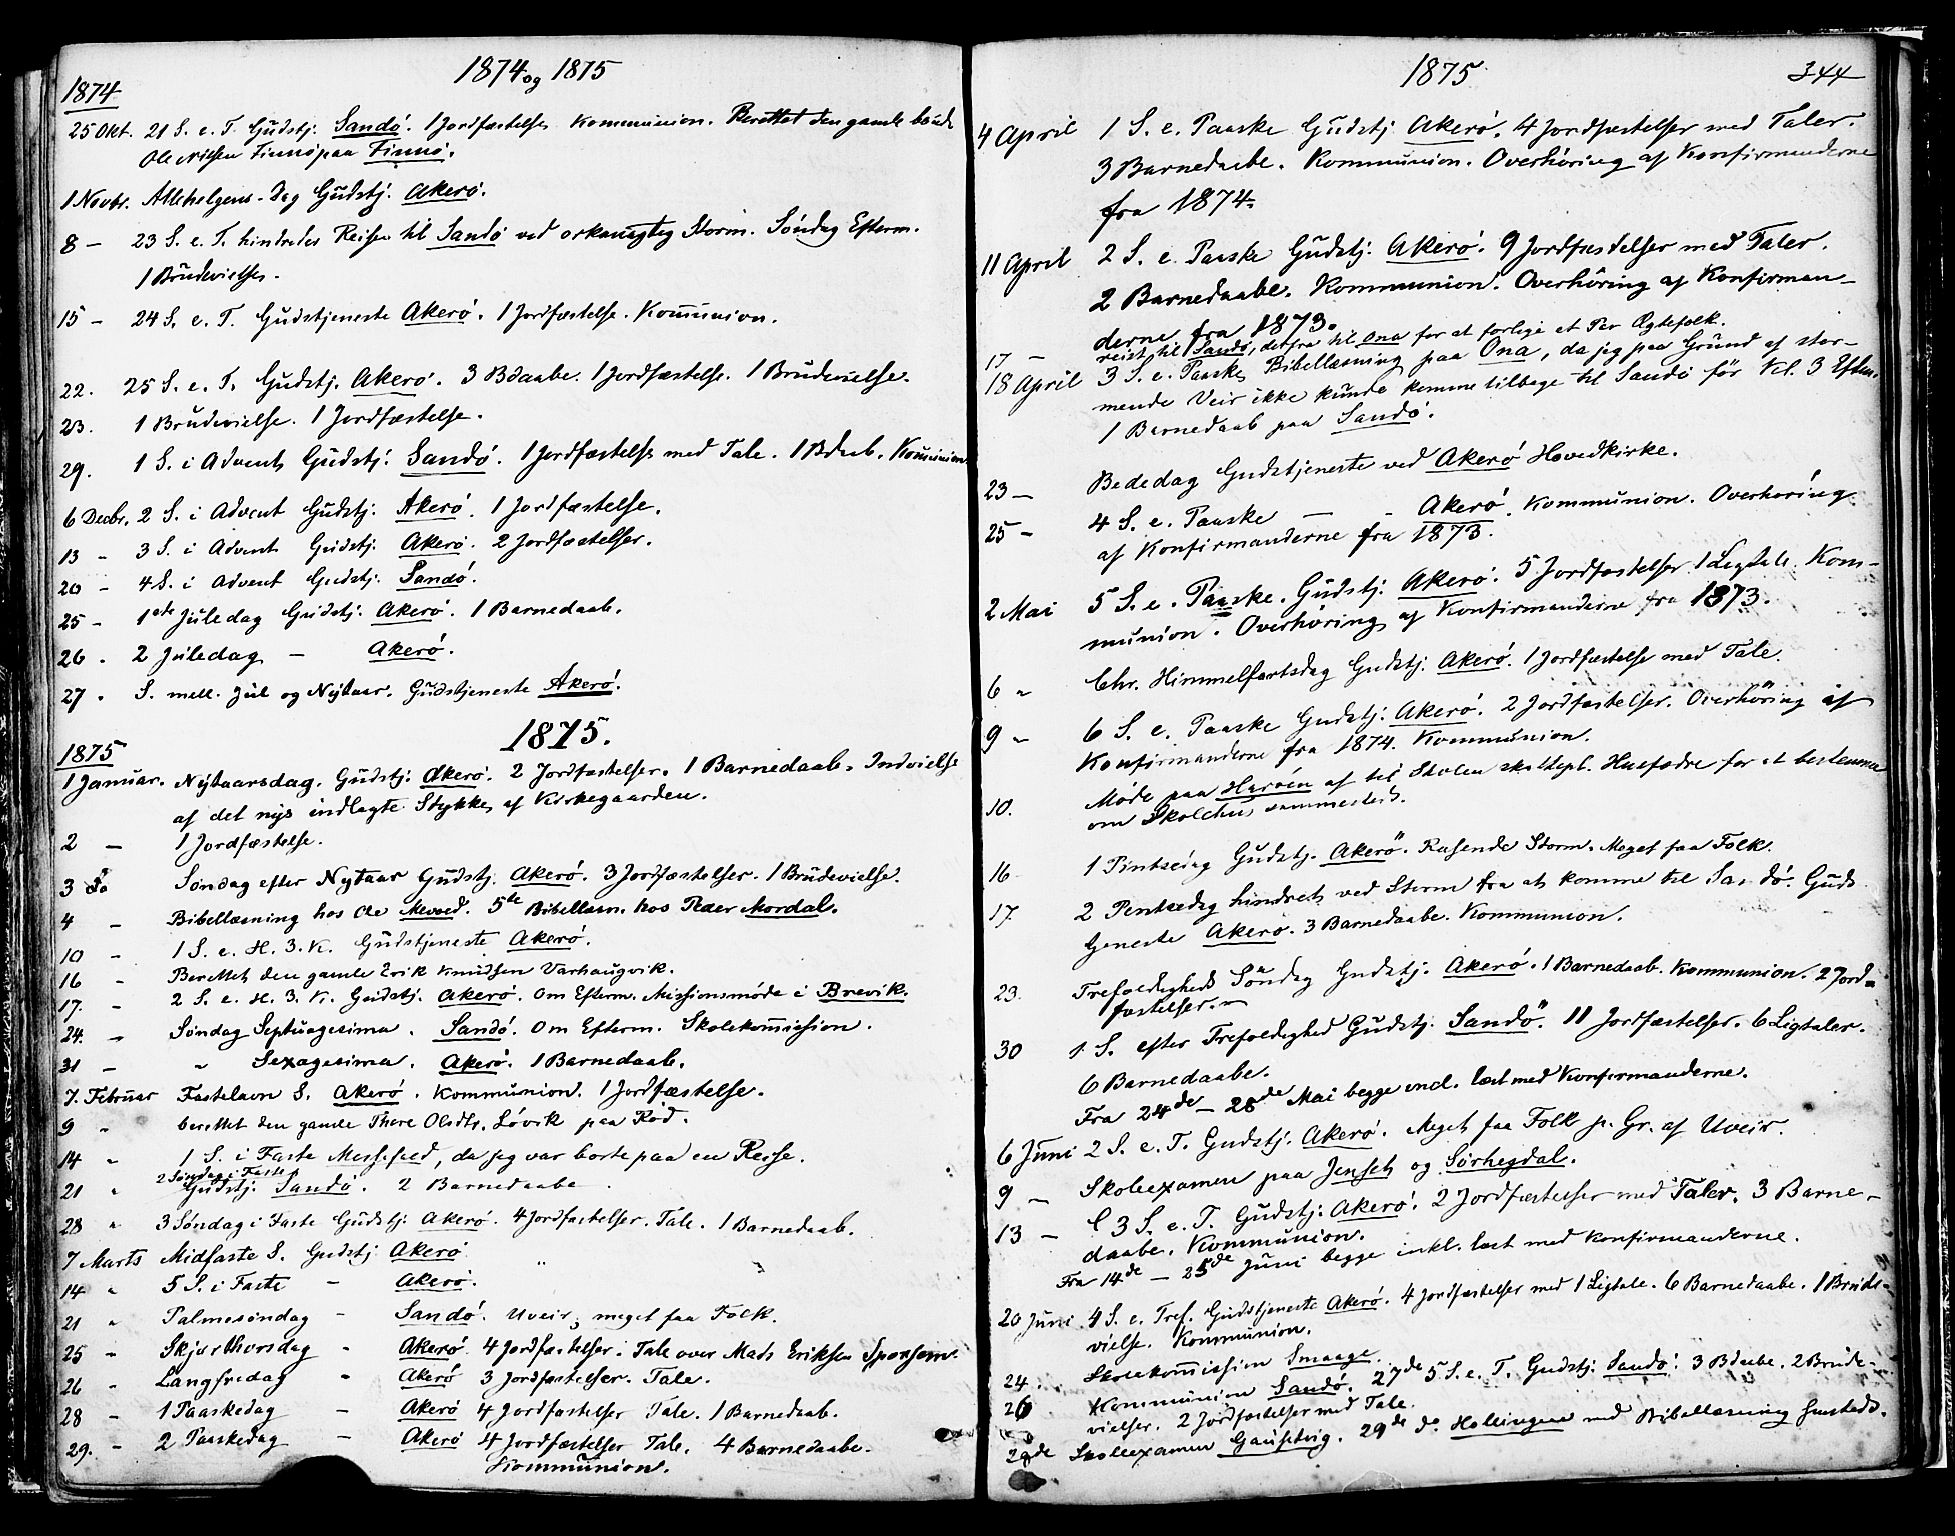 1874 og 1875
1874
25 Okt. 21 S. e. T. Gudstj. Sandö. 1 Jordfæstelse Kommunion. Berettet den gamle
Ole Nilsen Finnö paa Finnö.
1 Novbr. Allehelgens-Dag Gudstj. Akerö.
8 – 23 S. e. T. hindredes Reisen til Sandö ved orkanagtig Storm. Söndag Efterm.
1 Brudevielse.
15 – 24 S. e. T. Gudstjeneste Akerö. 1 Jordfæstelse. Kommunion.
22. 25 S. e. T. Gudstj. Akerö. 3 Bdaabe. 1 Jordfæstelse. 1 Brudevielse.
23. 1 Brudevielse. 1 Jordfæstelse.
29. 1 S. i Advent Gudstj. Sandö. 1 Jordfæstelse med Tale. 1 Bdaab. Kommunion
6 Decbr. 2 S. i Advent Gudstj. Akerö. 1 Jordfæstelse.
13 – 3 S. i Advent Gudstj. Akerö. 2 Jordfæstelser.
20 – 4 S. i Advent Gudstj. Sandö.
25 – 1ste Juledag Gudstj. Akerö. 1 Barnedaab.
26 . 2 Juledag – Akerö.
27 . S. mell. Jul og Nytaar. Gudstjeneste Akerö.
1875.
1875
1 Januar. Nytaarsdag. Gudstj. Akerö. 2 Jordfæstelser. 1 Barnedaab. Indvielse
af det nys indlagte Stykke af Kirkegaarden.
2 – 1 Jordfæstelse.
3 Söndag efter Nytaar Gudstj. Akerö. 3 Jordfæstelser. 1 Brudevielse.
4 – Bibellæsning hos Ole Mevold. 5te Bibellæsn. hos Peder Mordal.
10 – 1 S. e. H. 3. K. Gudstjeneste Akerö.
16 – Berettet den gamle Erik Knudsen Varhaugvik.
17. – 2 S. e. H. 3. K. Gudstj. Akerö. Om Efterm. Missionsmöde i Brevik.
24. – Söndag Septuagesima. Sandö. Om Efterm. Skolekommission.
31 – " Sexagesima. Akerö. 1 Barnedaab.
7. Februar Fastelavn S. Akerö. Kommunion. 1 Jordfæstelse.
9 " berettet den gamle Thore Olsdtr. Lövik paa Röd.
14 " 1 S. i Faste Messefald, da jeg var borte paa en Reise.
2 Söndag i Faste
21 " Gudstj. Sandö. 2 Barnedaabe
28 " 3 Söndag i Faste Gudstj. Akerö. 4 Jordfæstelser. Tale. 1 Barnedaab.
7 Marts Midfaste S. Gudstj. Akerö
14 " 5 S. i Faste – Akerö.
21 " Palmesöndag – Sandö. Uveir; meget faa Folk.
25 – Skjærthorsdag – Akerö 4 Jordfæstelser. Tale over Mads Eriksen
26 – Langfredag – Akerö 3 Jordfæstelser. Tale.
28 – 1 Paaskedag – Akerö 4 Jordfæstelser Tale. 1 Barnedaab.
29. – 2 Paaskedag – Akerö 4 Jordfæstelser Tale. 4 Barnedaabe.
Kommunion.
1875
344
4 April 1 S. e. Paaske Gudstj Akerö. 4 Jordfæstelser med Taler.
3 Barnedaabe. Kommunion. Overhöring af Konfirmanderne
fra 1874.
11 April 2 S. e. Paaske Gudstj. Akerö. 9 Jordfæstelser med Taler.
2 Barnedaabe. Kommunion. Overhöring af Konfirman-
derne fra 1873.
17 – reist til Sandö, derfra til Ona for at forlige et Par Ægtefolk.
18 April 3 S. e. Paaske Bibellæsning paa Ona, da jeg paa Grund af stor-
mende Veir ikke kunde komme tilbage til Sandö för Kl. 3 Efterm.
1 Barnedaab paa Sandö.
23 – Bededag Gudstjeneste ved Akerö Hovedkirke.
25 – 4 S. e. Paaske – – Akerö. Kommunion. Overhöring
af Konfirmanderne fra 1873.
2 Mai 5 S. e. Paaske. Gudstj. Akerö. 5 Jordfæstelser 1 Ligtale. Kom-
munion. Overhöring af Konfirmanderne fra 1873.
6 " Chr. Himmelfartsdag Gudstj. Akerö. 1 Jordfæstelse med Tale.
9 " 6 S. e. Paaske Gudstj. Akerö. 2 Jordfæstelser. Overhöring af
Konfirmanderne fra 1874. Kommunion.
10. Möde paa Haröen af til Skolen skattepl. Husfædre for at bestemme
om Skolehus sammesteds.
16 1 Pintsedag Gudstj. Akerö. Rasende Storm. Meget faa Folk.
17. 2 Pentsedag hindret ved Storm fra at komme til Sandö. Guds
tjeneste Akerö. 3 Barnedaabe. Kommunion.
23. Trefoldigheds Söndag Gudstj. Akerö. 1 Barnedaab. Kommunion. 2 Jord-
fæstelser.
30 1 S. efter Trefoldighed Gudstj. Sandö. 11 Jordfæstelser. 6 Ligtaler.
6 Barnedaabe.
Fra 24de – 28de Mai begge incl. læst med Konfirmanderne.
6 Juni 2 S. e. T. Gudstj. Akerö. Meget faa Folk p. Gr. af Uveir.
9 – Skoleexamen paa Jenset og Sörhegdal.
13 – 3 S. e. T. Gudstj. Akerö. 2 Jordfæstelser med Taler. 3 Barne-
daabe. Kommunion.
Fra 14de – 25de Juni begge inkl. læst med Konfirmanderne.
20 Juni 4 S. e. Tref. Gudstjeneste Akerö. 4 Jordfæstelser med 1 Ligtale. 6 Barnedaabe. 1 Brude-
vielse. Kommunion.
24. Skolekommission Smaage.
26 Kommunion Sandö. 27de 5 S. e. T. Gudstj. Sandö. 3 Bdaabe. 2 Brude-
vielser. 2 Jordfæstelser med Tale.
Skoleexamen 29de do Hollingen med Bibellæsning